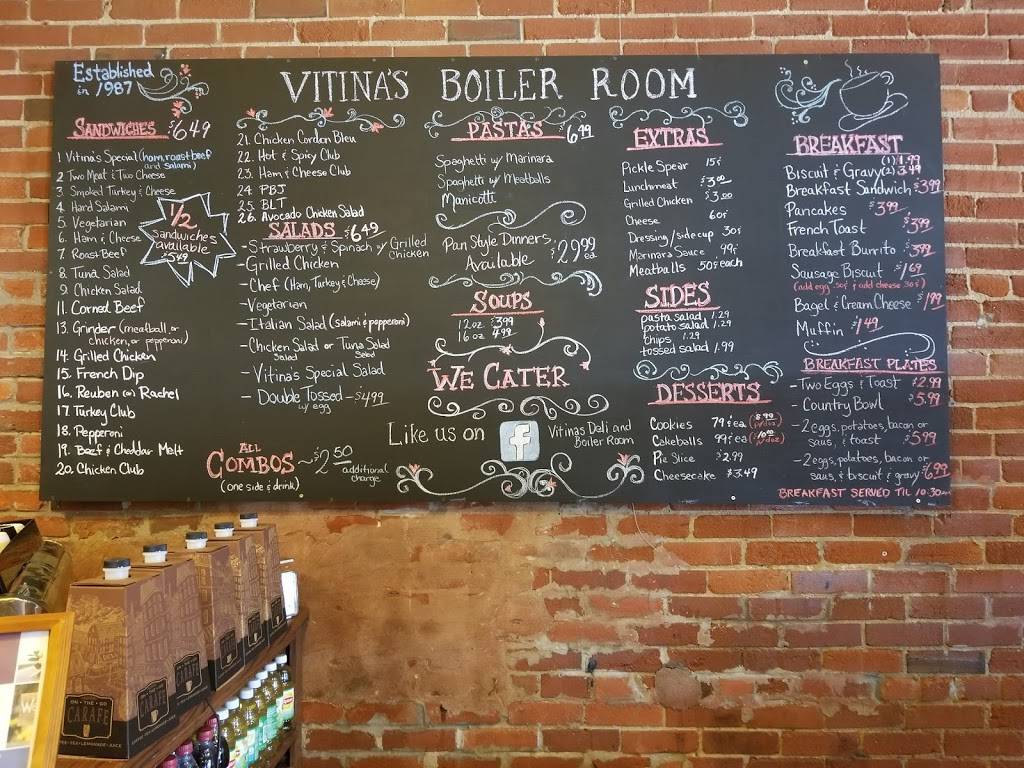 Established
in 1987
VITINA'S BOILER ROOM
SANDWICHES $6.49
1 Vitina's Special (ham, roast beef
and salami)
2 Two Meat & Two Cheese
3 Smoked Turkey & Cheese
4. Hard Salami
5. Vegetarian
6. Ham & Cheese
7. Roast Beef
8. Tuna Salad
9. Chicken Salad
11. Corned Beef
13. Grinder (meatball, or
chicken, or pepperoni)
14. Grilled Chicken
15. French Dip
16. Reuben (or) Rachel
17 Turkey Club
18. Pepperoni
19. Beef & Cheddar Melt
20. Chicken Club
1/2
sandwiches
available
$5.49
21. Chicken Cordon Bleu
22. Hot & Spicy Club
23. Ham & Cheese Club
24 PBJ
25. BLT
26. Avocado Chicken Salad
SALADS $6.49
- Strawberry & Spinach w/ Grilled
Chicken
- Grilled Chicken
- Chef (Ham, Turkey, & Cheese)
- Vegetarian
- Italian Salad (salami & pepperoni)
- Chicken Salad or Tuna Salad
Salad
- Vitina's Special Salad
- Double Tossed - $4.99
w/ egg
ALL
COMBOS ~ $2.50
additional
charge
(one side & drink)
PASTAS $6.99
Spaghetti w/ Marinara
Spaghetti w/ Meatballs
Manicotti
Pan Style Dinners
Available $29.99
ea
SOUPS
12 oz $3.99
16 oz 4.99
WE CATER
Like us on f Vitinas Deli and
Boiler Room
EXTRAS
Pickle Spear 15¢
Lunchmeat $3.00
Grilled Chicken $3.00
Cheese 60¢
Dressing/side cup 30¢
Marinara Sauce 99¢
Meatballs 50¢ each
SIDES
pasta salad 1.29
potato salad 1.29
chips 1.29
tossed salad 1.99
DESSERTS
Cookies 79¢ ea
Cakeballs 99¢ ea
Pie Slice $2.99
Cheesecake $3.49
BREAKFAST
Biscuit & Gravy (1) 1.99
(2) 3.49
Breakfast Sandwich $3.99
Pancakes $3.99
French Toast $3.99
Breakfast Burrito $3.99
Sausage Biscuit $1.69
(add egg .50¢ & add cheese 30¢)
Bagel & Cream Cheese $1.99
Muffin $1.49
BREAKFAST PLATES
- Two Eggs & Toast $2.99
- Country Bowl $5.99
- 2 eggs, potatoes, bacon or
saus, & toast $5.99
- 2 eggs, potatoes, bacon or
saus, & biscuit & gravy $6.99
BREAKFAST SERVED TIL 10:30am
ON • THE • GO
CARAFE